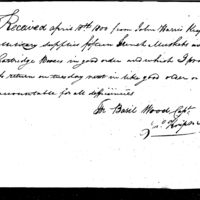 Received April 10th 1800 from John Harris Keep
Military Supplies fifteen French Muskets and
Cartridge Boxes in good order and which I pro
to return on tuesday next in like good order or
accountable for all deficiencies
For Basil Wood Capt.